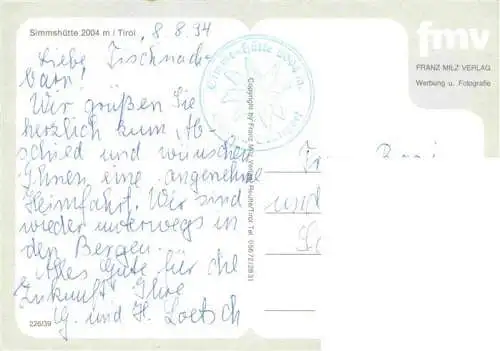 Simmshütte 2004 m / Tirol, 8.8.94
Liebe Tischnach-
barn!
Wir grüßen Sie
herzlich zum Ab-
schied und wünschen
Ihnen eine angenehme
Heimfahrt. Wir sind
wieder unterwegs in
den Bergen.
Alles Gute für die
Zukunft! Ihre
G. und H. Loetsch
226/39
Simms-Hütte 2004 m
Copyright by Franz Milz Verlag Reutte/Tirol Tel. 05672/2831
fmv
FRANZ MILZ VERLAG
Werbung u. Fotografie